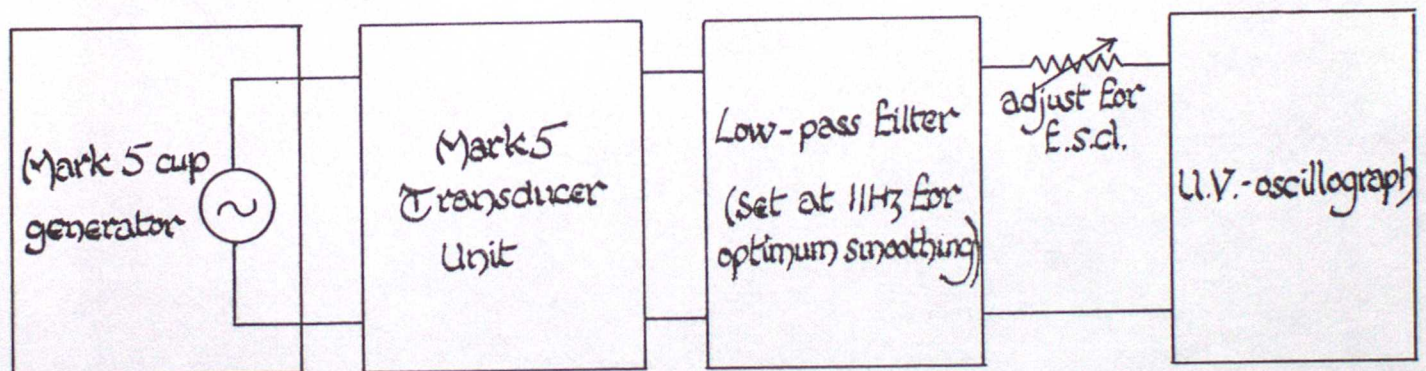 Mark 5 cup
generator
Mark 5
Transducer
Unit
Low-pass filter
(set at 11Hz for
optimum smoothing)
adjust for
f.s.d.
U.V.-oscillograph